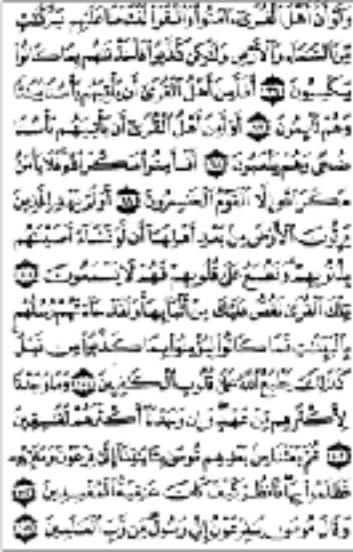 وَلَوْ أَنَّ أَهْلَ ٱلْقُرَىٰٓ ءَامَنُوا۟ وَٱتَّقَوْا۟ لَفَتَحْنَا عَلَيْهِم بَرَكَٰتٍ
مِّنَ ٱلسَّمَآءِ وَٱلْأَرْضِ وَلَٰكِن كَذَّبُوا۟ فَأَخَذْنَٰهُم بِمَا كَانُوا۟
يَكْسِبُونَ ٩٦ أَفَأَمِنَ أَهْلُ ٱلْقُرَىٰٓ أَن يَأْتِيَهُم بَأْسُنَا بَيَٰتًا
وَهُمْ نَآئِمُونَ ٩٧ أَوَأَمِنَ أَهْلُ ٱلْقُرَىٰٓ أَن يَأْتِيَهُم بَأْسُنَا
ضُحًى وَهُمْ يَلْعَبُونَ ٩٨ أَفَأَمِنُوا۟ مَكْرَ ٱللَّهِ فَلَا يَأْمَنُ
مَكْرَ ٱللَّهِ إِلَّا ٱلْقَوْمُ ٱلْخَٰسِرُونَ ٩٩ أَوَلَمْ يَهْدِ لِلَّذِينَ
يَرِثُونَ ٱلْأَرْضَ مِنۢ بَعْدِ أَهْلِهَآ أَن لَّوْ نَشَآءُ أَصَبْنَٰهُم
بِذُنُوبِهِمْ وَنَطْبَعُ عَلَىٰ قُلُوبِهِمْ فَهُمْ لَا يَسْمَعُونَ ١٠٠
تِلْكَ ٱلْقُرَىٰ نَقُصُّ عَلَيْكَ مِنْ أَنۢبَآئِهَا وَلَقَدْ جَآءَتْهُمْ رُسُلُهُم
بِٱلْبَيِّنَٰتِ فَمَا كَانُوا۟ لِيُؤْمِنُوا۟ بِمَا كَذَّبُوا۟ مِن قَبْلُ
كَذَٰلِكَ يَطْبَعُ ٱللَّهُ عَلَىٰ قُلُوبِ ٱلْكَٰفِرِينَ ١٠١ وَمَا وَجَدْنَا
لِأَكْثَرِهِم مِّنْ عَهْدٍ وَإِن وَجَدْنَآ أَكْثَرَهُمْ لَفَٰسِقِينَ
١٠٢ ثُمَّ بَعَثْنَا مِنۢ بَعْدِهِم مُّوسَىٰ بِـَٔايَٰتِنَآ إِلَىٰ فِرْعَوْنَ وَمَلَإِي۟هِۦ
فَظَلَمُوا۟ بِهَا فَٱنظُرْ كَيْفَ كَانَ عَٰقِبَةُ ٱلْمُفْسِدِينَ ١٠٣
وَقَالَ مُوسَىٰ يَٰفِرْعَوْنُ إِنِّى رَسُولٌ مِّن رَّبِّ ٱلْعَٰلَمِينَ ١٠٤